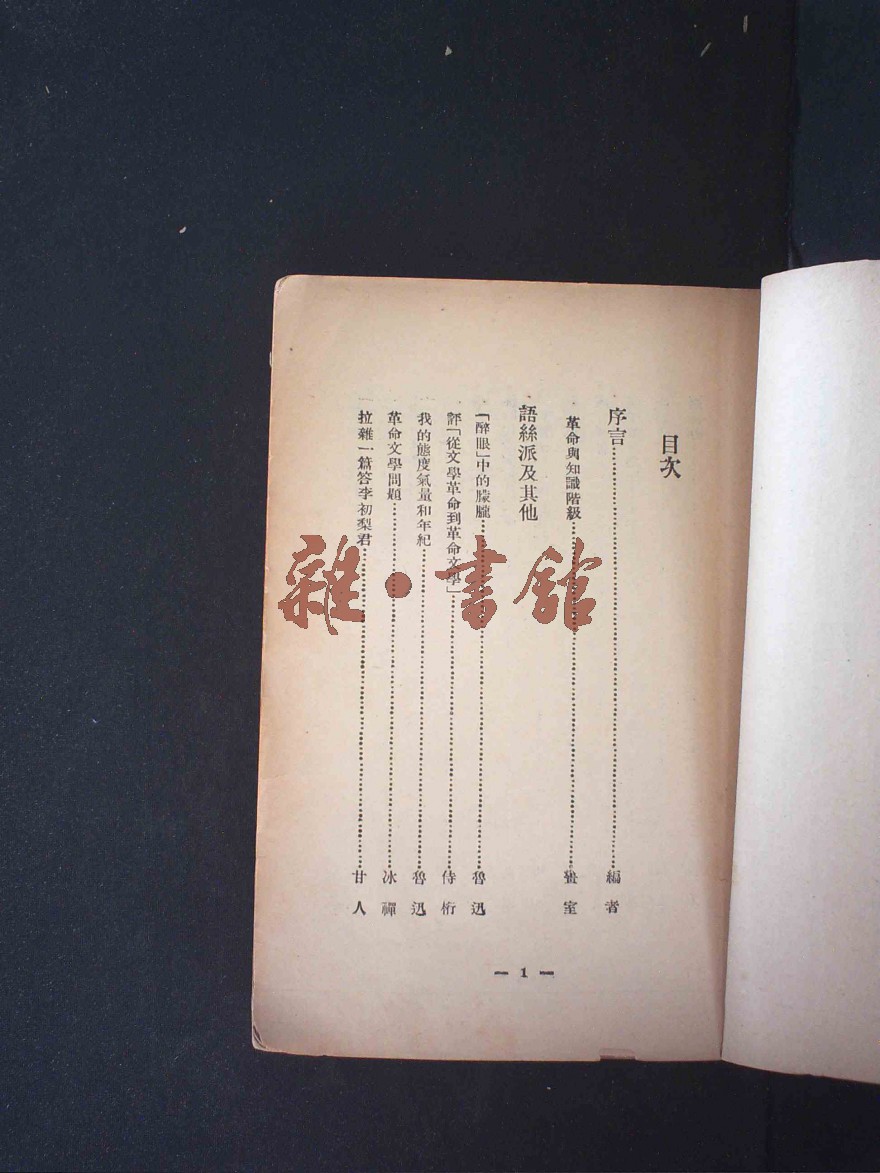 目次
序言………編者
革命與知識階級………畫室
語絲派及其他
「醉眼」中的朦朧………魯迅
評「從文學革命到革命文學」………侍桁
我的態度氣量和年紀………魯迅
革命文學問題………冰禪
拉雜一篇答李初梨君………甘人
— 1 —
雜·書館